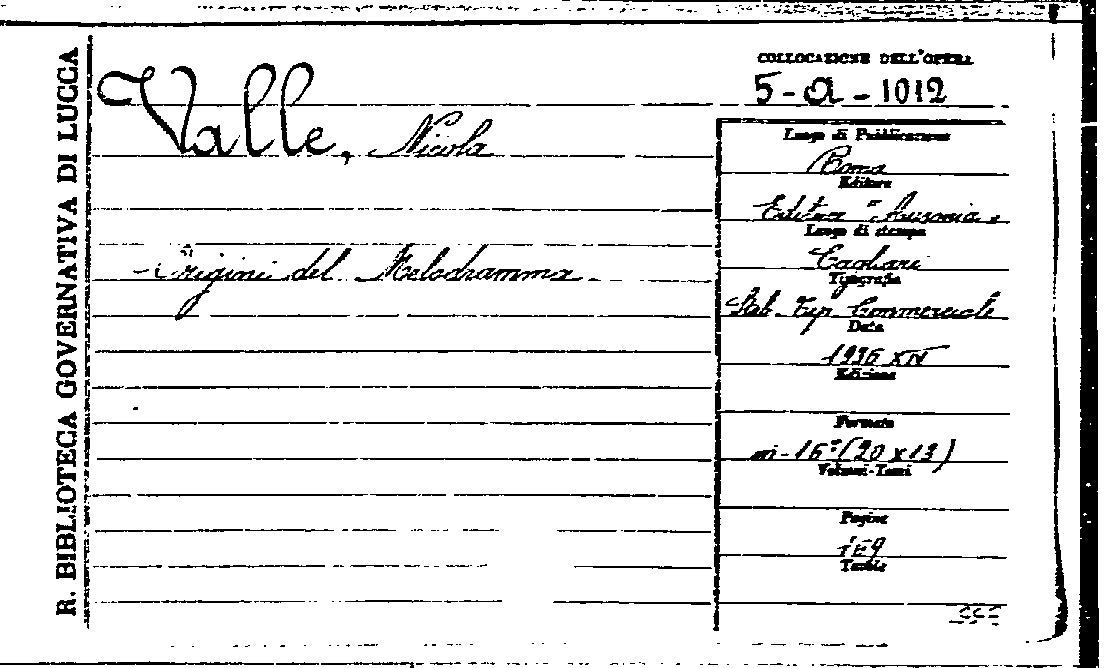 R. BIBLIOTECA GOVERNATIVA DI LUCCA
Valle, Nicola
- Origini del Melodramma.
COLLOCAZIONE DELL'OPERA
5-a-1012
Luogo di Pubblicazione
Roma
Editore
Editrice "Ausonia"
Luogo di stampa
Cagliari
Tipografia
Stab. Tip. Commerciale
Data
1936 XIV
Edizione
Formato
in-16° (20 x 13)
Volumi-Tomi
Pagine
Tavole